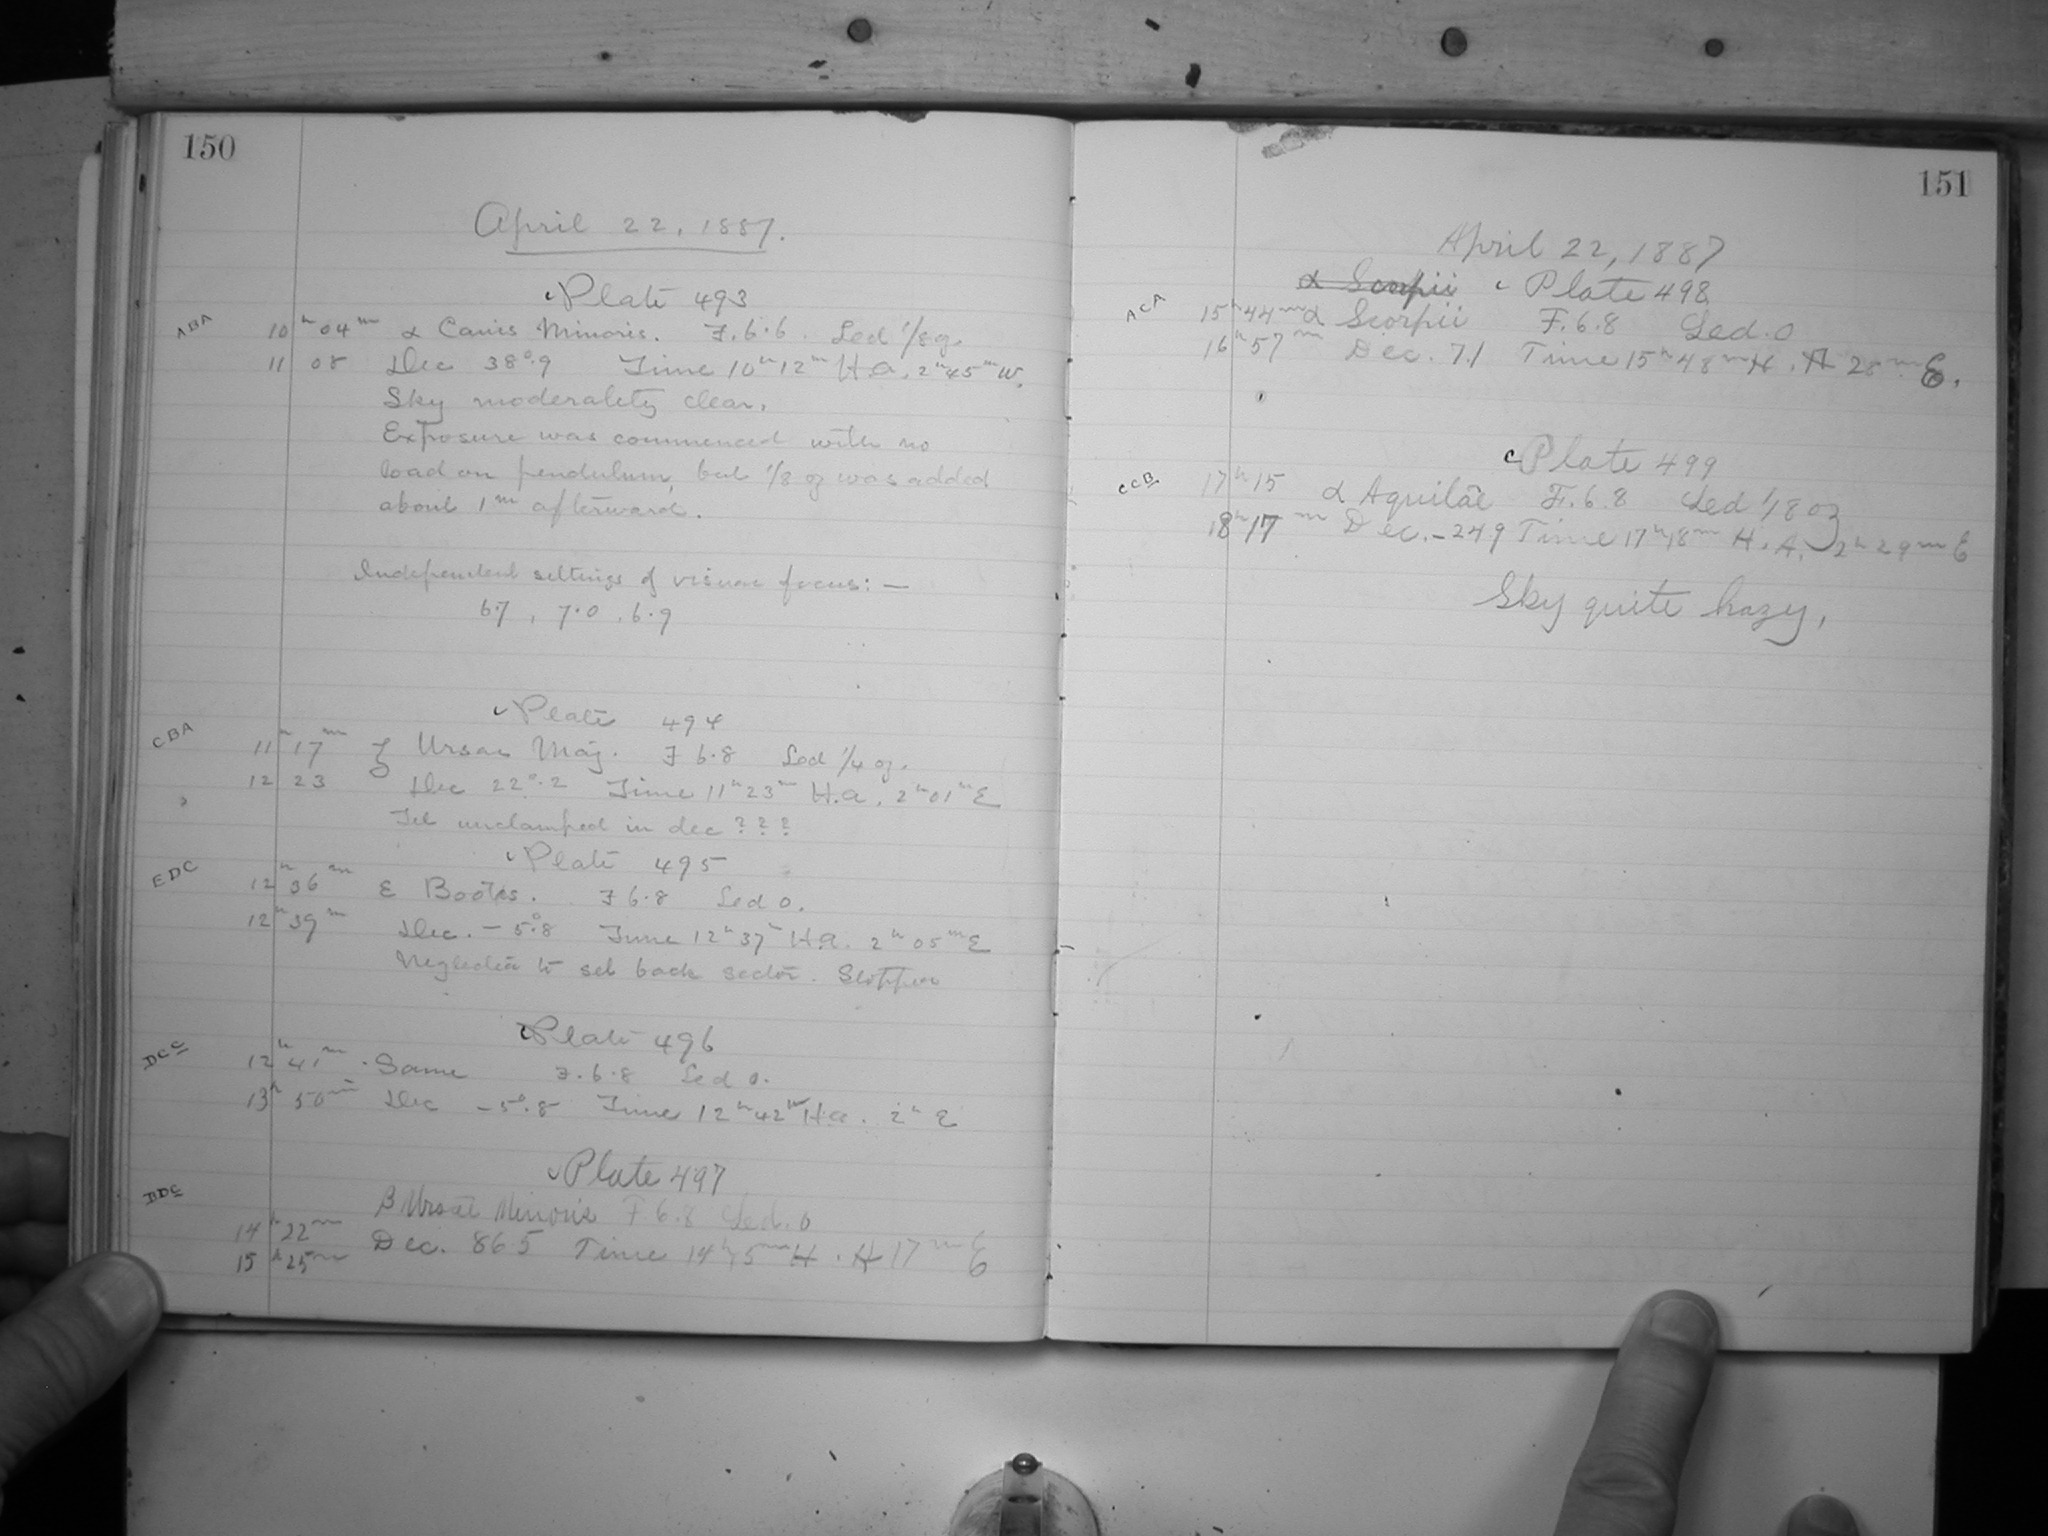 150
April 22, 1887.
Plate 493
ABA 10h 04m α Canis Minoris. F. 6.6. Led 1/8 oz.
11 08 Dec 38°.9 Time 10h 12m H.A. 2h 45m W.
Sky moderately clear.
Exposure was commenced with no
load on pendulum, but 1/8 oz was added
about 1m afterward.
Independent settings of visual focus: —
6.7, 7.0, 6.9
Plate 494
CBA 11h 17m ζ Ursae Maj. F 6.8 Led 1/4 oz.
12 23 Dec 22°.2 Time 11h 23m H.A. 2h 01m E
Tel unclamped in dec ? ? ?
Plate 495
EDC 12h 36m ε Bootes. F 6.8 Led 0.
12h 39m Dec. - 5°.8 Time 12h 37m H.A. 2h 05m E
Neglected to set back sector. Stopped
Plate 496
DCC 12h 41m Same F. 6.8 Led 0.
13h 50m Dec - 5°.8 Time 12h 42m H.A. 2h E
Plate 497
BDC β Ursae Minoris F 6.8 Led. 0
14h 22m Dec. 86 5 Time 14h 5m H. A 17m E
15h 25m
151
April 22, 1887
α Scorpii Plate 498
ACA 15h 44m α Scorpii F. 6.8 Led. 0
16h 57m Dec. 7.1 Time 15h 48m H. A 28m E.
Plate 499
CCB 17h 15 α Aquilae F. 6.8 Led 1/8 oz
18h 17m Dec. - 24.9 Time 17h 18m H. A. 2h 29m E
Sky quite hazy,